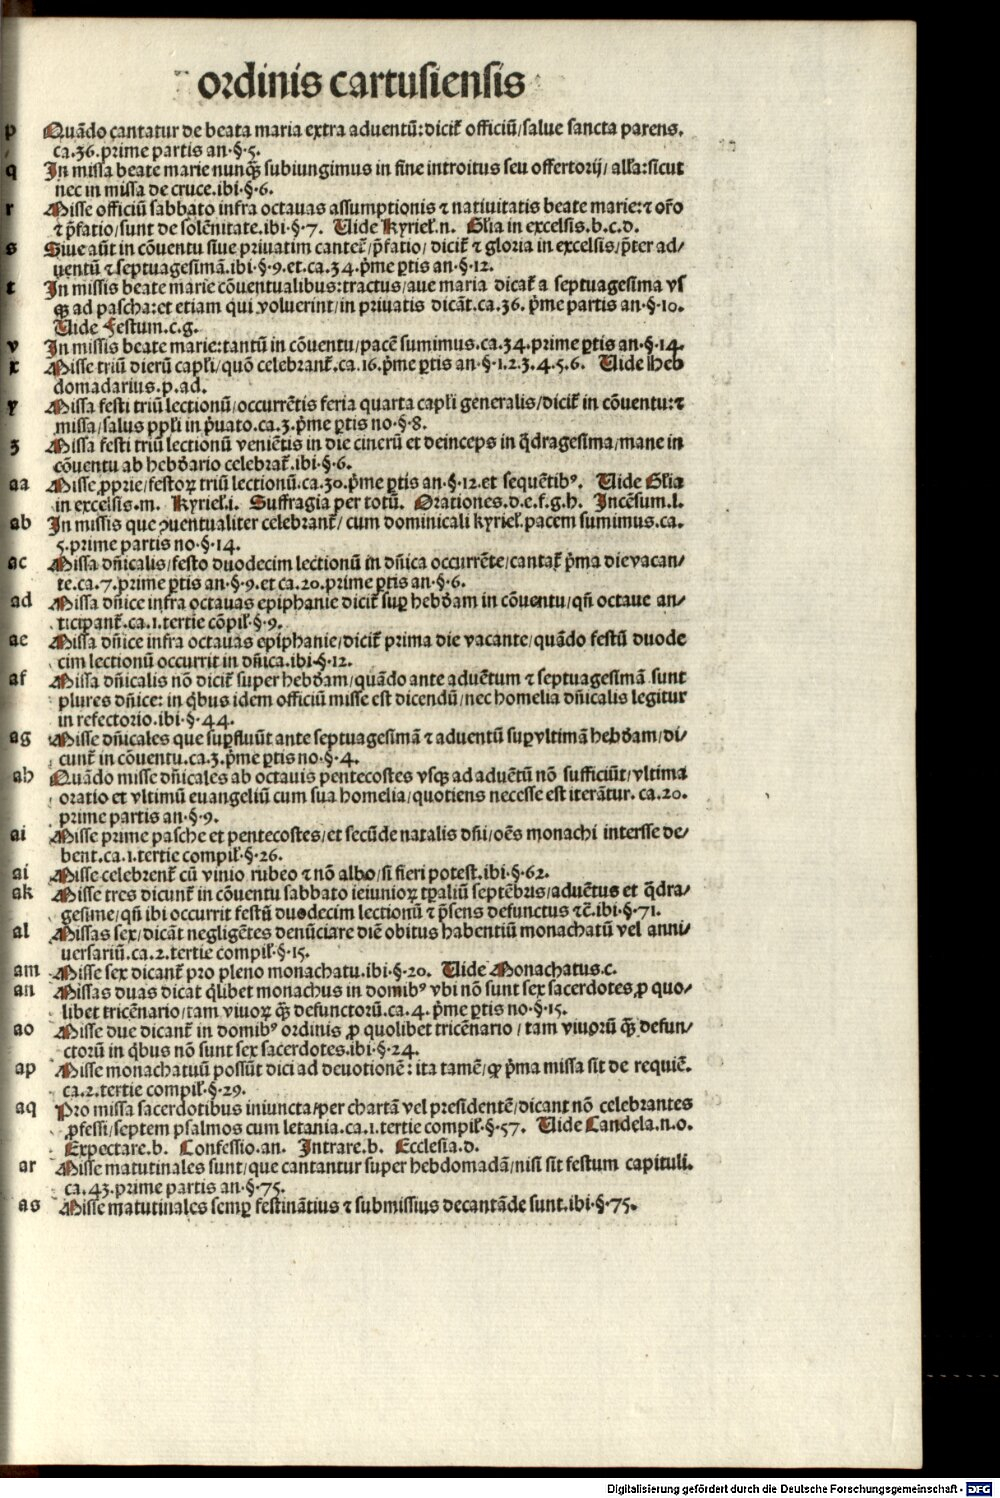 ordinis cartusiensis
p Quādo cantatur de beata maria extra aduentū: dicit̄ officiū/salue sancta parens.
ca.36.prime partis an.§.5.
q In missa beate marie nunq̄ꝫ subiungimus in fine introitus seu offertorij/ alla: sicut
nec in missa de cruce.ibi.§.6.
r Misse officiū sabbato infra octauas assumptionis ⁊ natiuitatis beate marie: ⁊ oro
⁊ p̄fatio/sunt de solēnitate.ibi.§.7. Uide Kyriel.n. Glia in excelsis.b.c.d.
s Siue aūt in cōuentu siue priuatim cantet̄/p̄fatio/dicit̄ ⁊ gloria in excelsis/p̄ter ad/
uentū ⁊ septuagesimā.ibi.§.9.et.ca.34.p̄me ꝑtis an.§.12.
t In missis beate marie cōuentualibus: tractus/aue maria dicat̄ a septuagesima vs
qꝫ ad pascha: et etiam qui voluerint/in priuatis dicāt.ca.36. p̄me partis an.§.10.
Uide Festum.c.g.
v In missis beate marie: tantū in cōuentu/pacē sumimus.ca.34.prime ꝑtis an.§.14.
x Misse triū dierū capli/quō celebrant̄.ca.16.p̄me ꝑtis an.§.1.2.3.4.5.6. Uide Heb
domadarius.p.ad.
y Missa festi triū lectionū/occurrētis feria quarta capli generalis/dicit̄ in cōuentu: ⁊
missa/salus ppli in p̄uato.ca.3.p̄me ꝑtis no.§.8.
z Missa festi triū lectionū veniētis in die cinerū et deinceps in q̄dragesima/mane in
cōuentu ab hebdario celebrat̄.ibi.§.6.
aa Misse ꝓprie/festoꝝ triū lectionū.ca.30.p̄me ꝑtis an.§.12.et sequētibꝰ. Uide Glia
in excelsis.m. Kyriel.i. Suffragia per totū. Orationes.d.e.f.g.h. Incēsum.l.
ab In missis que ꝯuentualiter celebrant̄/ cum dominicali kyriel.pacem sumimus.ca.
5.prime partis no.§.14.
ac Missa dn̄icalis/festo duodecim lectionū in dn̄ica occurrēte/cantat̄ p̄ma die vacan/
te.ca.7.prime ꝑtis an.§.9.et ca.20.prime ꝑtis an.§.6.
ad Missa dn̄ice infra octauas epiphanie dicit̄ suꝑ hebdam in cōuentu/qn̄ octaue an/
ticipant̄.ca.1.tertie cōpil.§.9.
ae Missa dn̄ice infra octauas epiphanie/dicit̄ prima die vacante/quādo festū duode
cim lectionū occurrit in dn̄ica.ibi.§.12.
af Missa dn̄icalis nō dicit̄ super hebdam/quādo ante aduētum ⁊ septuagesimā sunt
plures dn̄ice: in q̄bus idem officiū misse est dicendū/nec homelia dn̄icalis legitur
in refectorio.ibi.§.44.
ag Misse dn̄icales que suꝑfluūt ante septuagesimā ⁊ aduentū suꝑ vltimā hebdam/di/
cunt̄ in cōuentu.ca.3.p̄me ꝑtis no.§.4.
ah Quādo misse dn̄icales ab octauis pentecostes vsqꝫ ad aduētū nō sufficiūt/vltima
oratio et vltimū euangeliū cum sua homelia/quotiens necesse est iterātur. ca.20.
prime partis an.§.9.
ai Misse prime pasche et pentecostes/et secūde natalis dn̄i/oēs monachi interesse de/
bent.ca.1.tertie compil.§.26.
ai Misse celebrent̄ cū vinio rubeo ⁊ nō albo/si fieri potest.ibi.§.62.
ak Misse tres dicunt̄ in cōuentu sabbato ieiunioꝝ tꝑaliū septēbris/aduētus et q̄dra/
gesime/qn̄ ibi occurrit festū duodecim lectionū ⁊ p̄sens defunctus ⁊c̄.ibi.§.71.
al Missas sex/dicāt negligētes denūciare diē obitus habentiū monachatū vel anni/
uersariū.ca.2.tertie compil.§.15.
am Misse sex dicant̄ pro pleno monachatu.ibi.§.20. Uide Monachatus.c.
an Missas duas dicat q̄libet monachus in domibꝰ vbi nō sunt sex sacerdotes/ꝓ quo/
libet tricēnario/tam viuoꝝ qꝫ̄ defunctorū.ca.4. p̄me ꝑtis no.§.15.
ao Misse due dicant̄ in domibꝰ ordinis ꝓ quolibet tricēnario / tam viuorū qꝫ̄ defun/
ctorū in q̄bus nō sunt sex sacerdotes.ibi.§.24.
ap Misse monachatuū possūt dici ad deuotionē: ita tamē/ꝙ p̄ma missa sit de requiē.
ca.2.tertie compil.§.29.
aq Pro missa sacerdotibus iniuncta/per chartā vel presidentē/dicant nō celebrantes
ꝓfessi/septem psalmos cum letania.ca.1.tertie compil.§.57. Uide Candela.n.o.
Expectare.b. Confessio.an. Intrare.b. Ecclesia.d.
ar Misse matutinales sunt/que cantantur super hebdomadā/nisi sit festum capituli.
ca.43.prime partis an.§.75.
as Misse matutinales semꝑ festinātius ⁊ submissius decantāde sunt.ibi.§.75.
Digitalisierung gefördert durch die Deutsche Forschungsgemeinschaft - DFG